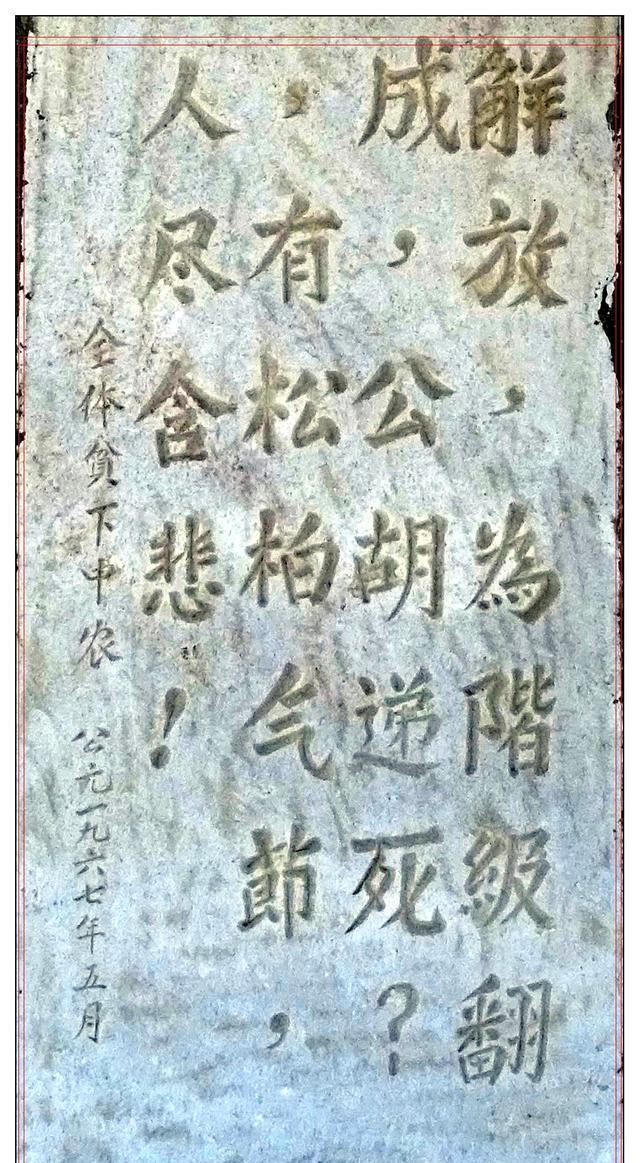 解放，為階級翻
成，公胡递死？
，有松柏气節，
人尽含悲！
全体贫下中农 公元一九六七年五月